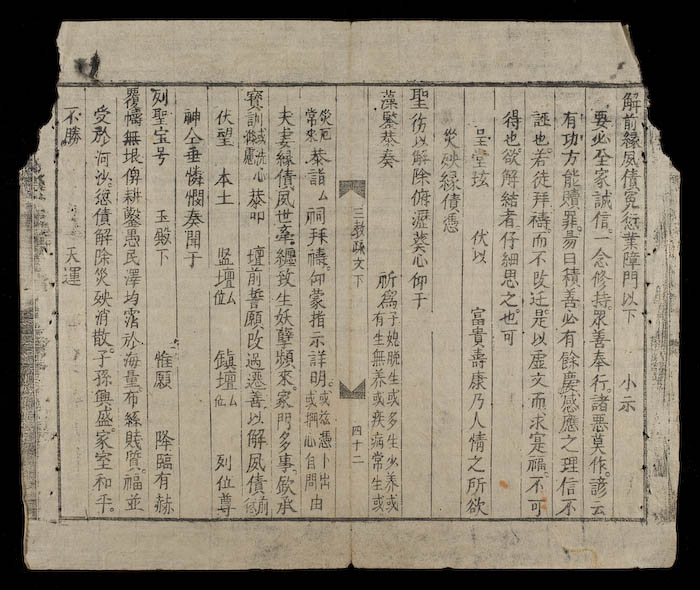 解前緣夙債冤愆業障門以下　小示
要必至家誠信一念修持眾善奉行諸惡莫作諺云
有功方能贖罪易曰積善必有餘慶感應之理信不
誣也若徒拜禱而不改迁是以虛文而求寔禍不可
得也欲解結者仔細思之也可
呈堂玹　伏以　富貴壽康乃人情之所欲
災殃緣債憑
聖術以解除俯瀝葵心仰于
藻鑒恭奏　祈為子媳脫生或多生少養或
有生無養或疾病常生或
三教疏文下　四十二
災厄
常來
恭詣厶祠拜禱仰蒙指示詳明或茲憑卜出
或捫心自問
由
夫妻緣債夙世牽纏致生妖孽頻來家門多事欽承
寶訓或洗心
滌慮
恭叩　壇前誓願改過遷善以解夙債前
愆
伏望　本土　監壇厶
位　鎮壇厶
位　列位尊
神仝垂憐憫奏聞于
列聖宝号　玉殿下　惟願　降臨有赫
覆幬無垠俾耕鑿愚民澤均霑於海量布絲賤質福並
受於河沙愆債解除災殃消散子孫興盛家室和平
不勝　天運